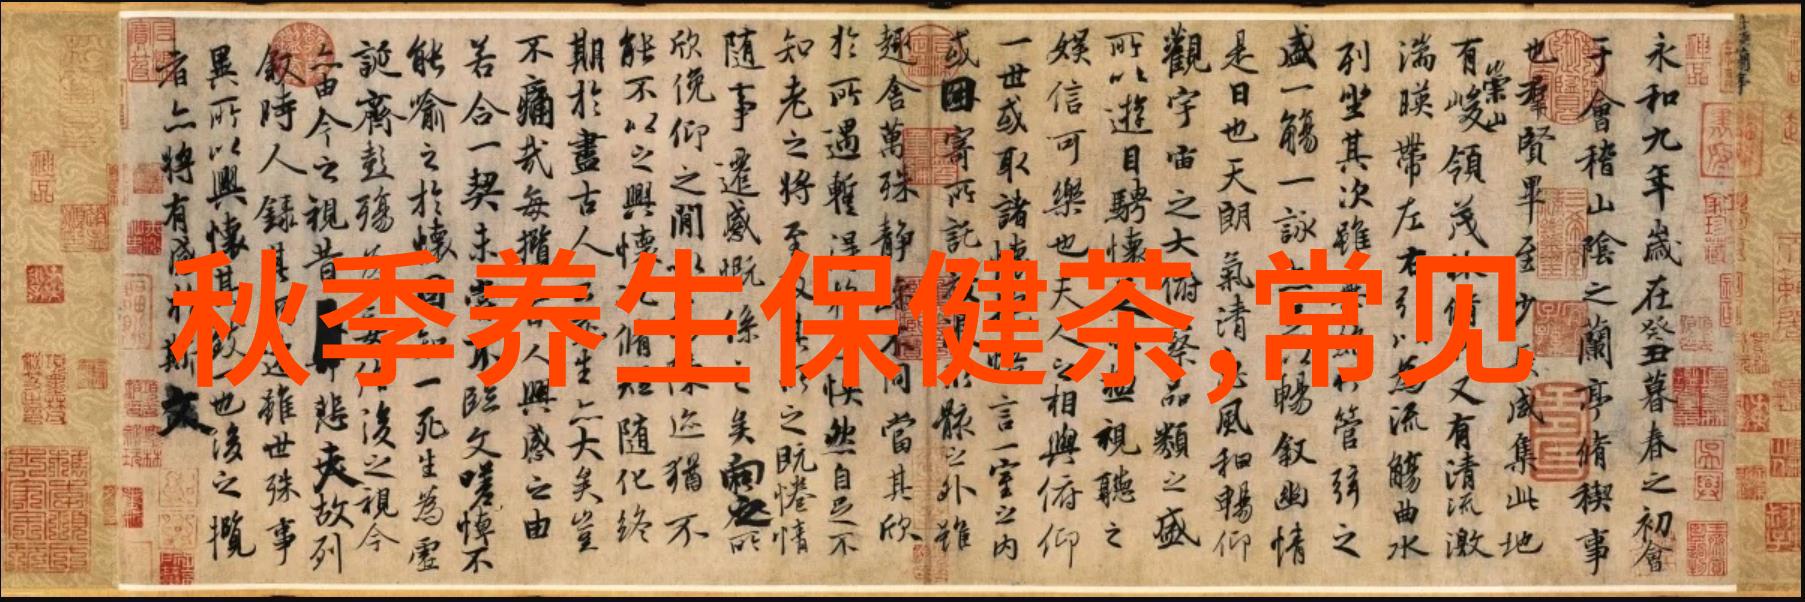 秋季养生保健茶,常见
永和九年歲在癸丑暮春之初會
于會稽山陰之蘭亭脩稧事
也羣賢畢至少長咸集此地
有崇山峻領茂林脩竹又有清流激
湍暎帶左右引以為流觴曲水
列坐其次雖無絲竹管弦之
盛一觴一詠亦足以暢叙幽情
是日也天朗氣清惠風和暢仰
觀宇宙之大俯察品類之盛
所以遊目騁懷足以極視聽之
娛信可樂也夫人之相與俯仰
一世或取諸懷抱悟言一室之內
或因寄所託放浪形骸之外雖
趣舍萬殊靜躁不同當其欣
於所遇蹔得於己怏然自足不
知老之將至及其所之既惓情
隨事遷感慨係之矣向之所
欣俛仰之閒以為陳迹猶不
能不以之興懷況脩短隨化終
期於盡古人云死生亦大矣豈
不痛哉每攬昔人興感之由
若合一契未嘗不臨文嗟悼不
能喻之於懷固知一死生為虛
誕齊彭殤為妄作後之視今
亦由今之視昔悲夫故列
叙時人錄其所述雖世殊事
異所以興懷其致一也後之攬
者亦將有感於斯文